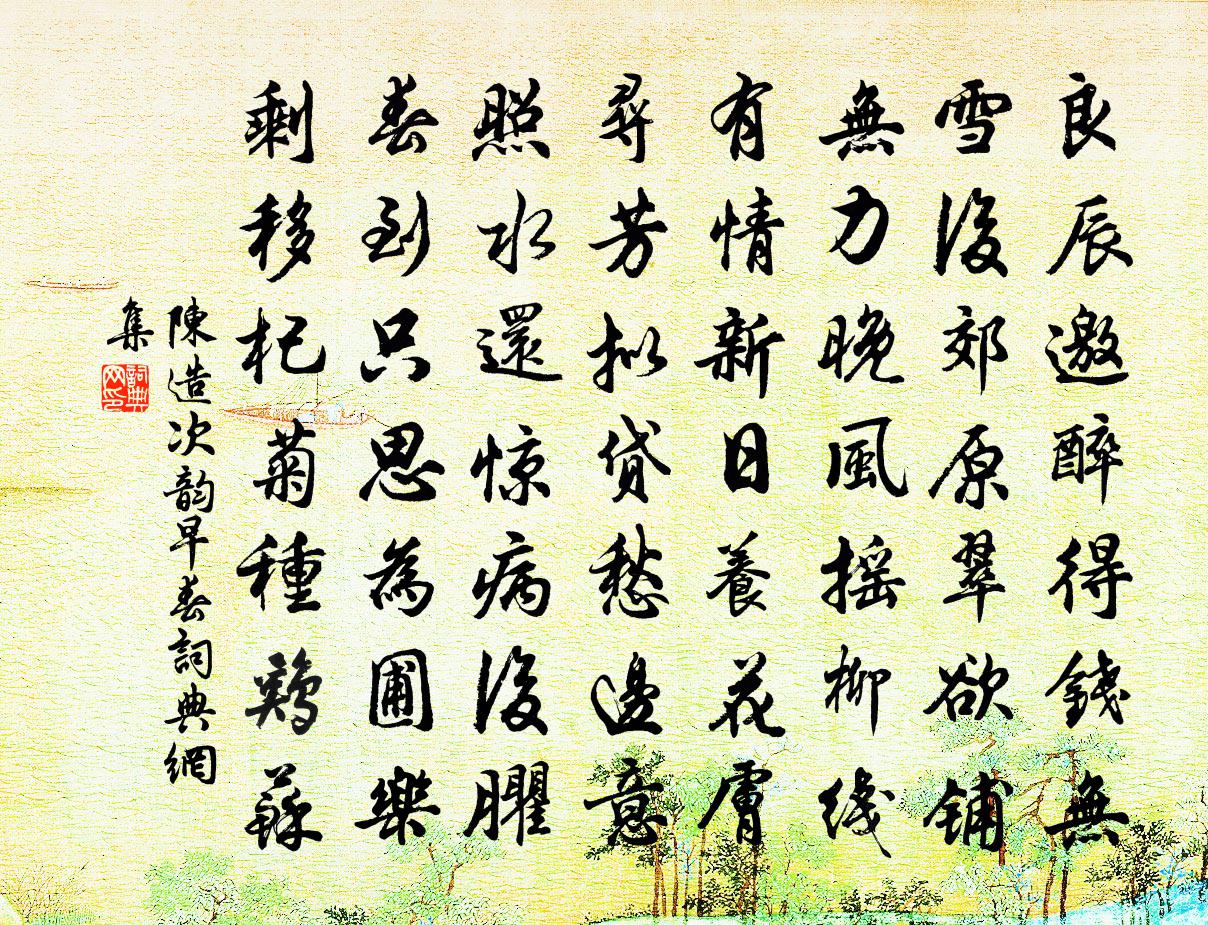 良辰邀醉得錢無
雪後郊原翠欲鋪
無力晚風搖柳綫
有情新日養花膚
尋芳拟貸愁邊意
照水還惊病後臞
春到只思為圃樂
剩移杞菊種鶏蘇
陳造次韵早春詞典網
集
詞典
网印